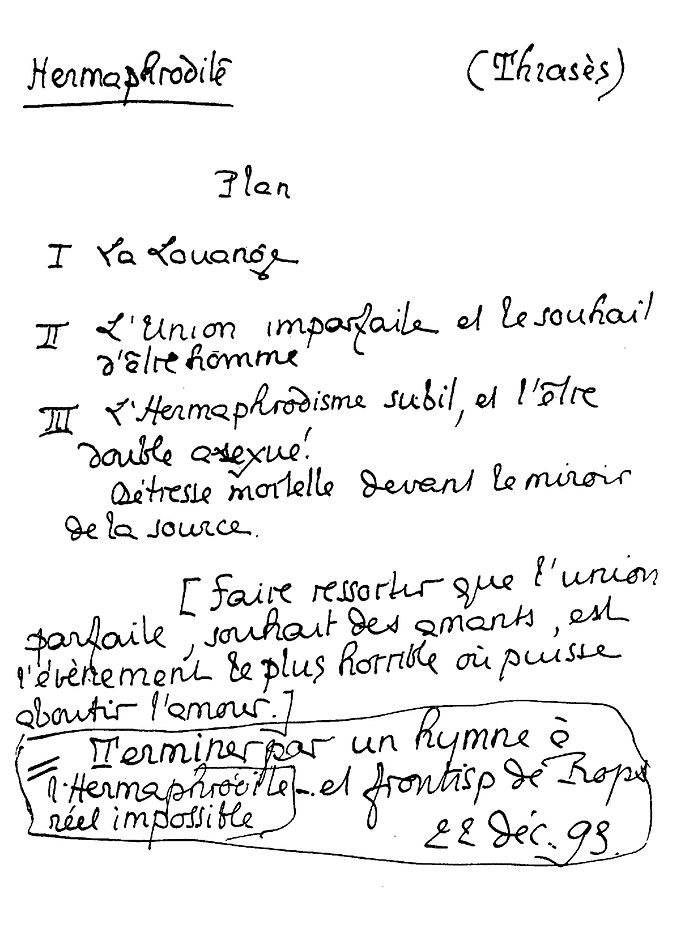 Hermaphroditê (Thrasès)
Plan
I La Louange
II L'Union imparfaite et le souhait
d'être homme
III L'Hermaphrodisme subit, et l'être
double asexué!
Détresse mortelle devant le miroir
de la source.
[Faire ressortir que l'union
parfaite, souhait des amants, est
l'évènement le plus horrible où puisse
aboutir l'amour.]
= Terminer par un hymne à
l'Hermaphrodite - et frontisp de Rops
réel impossible
22 déc. 93.